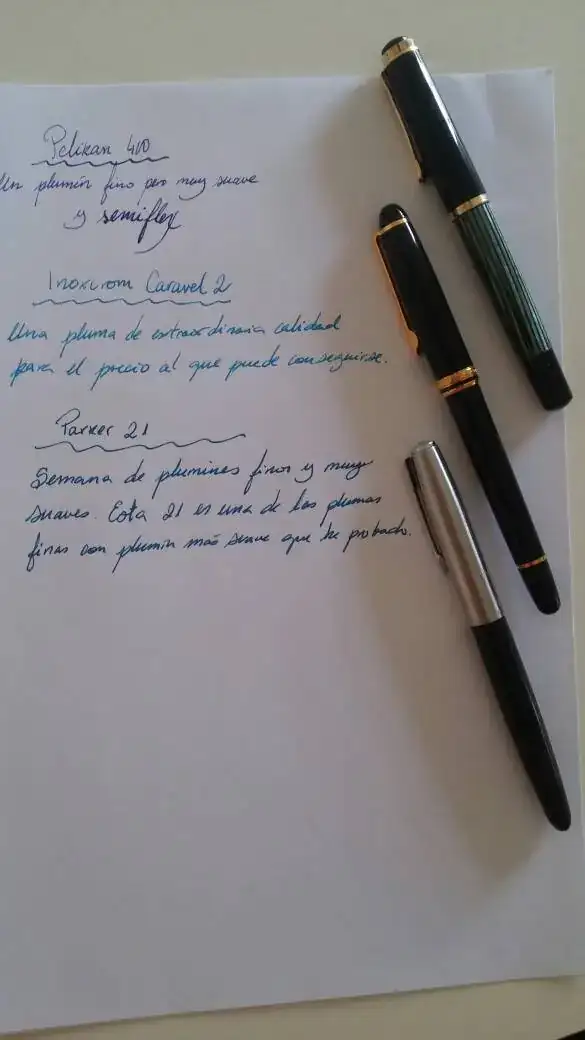 Pelikan 400
Un plumín fino pero muy suave
y semiflex
Inoxcrom Caravel 2
Una pluma de extraordinaria calidad
para el precio al que puede conseguirse.
Parker 21
Semana de plumines finos y muy
suaves. Esta 21 es una de las plumas
finas con plumín más suave que he probado.